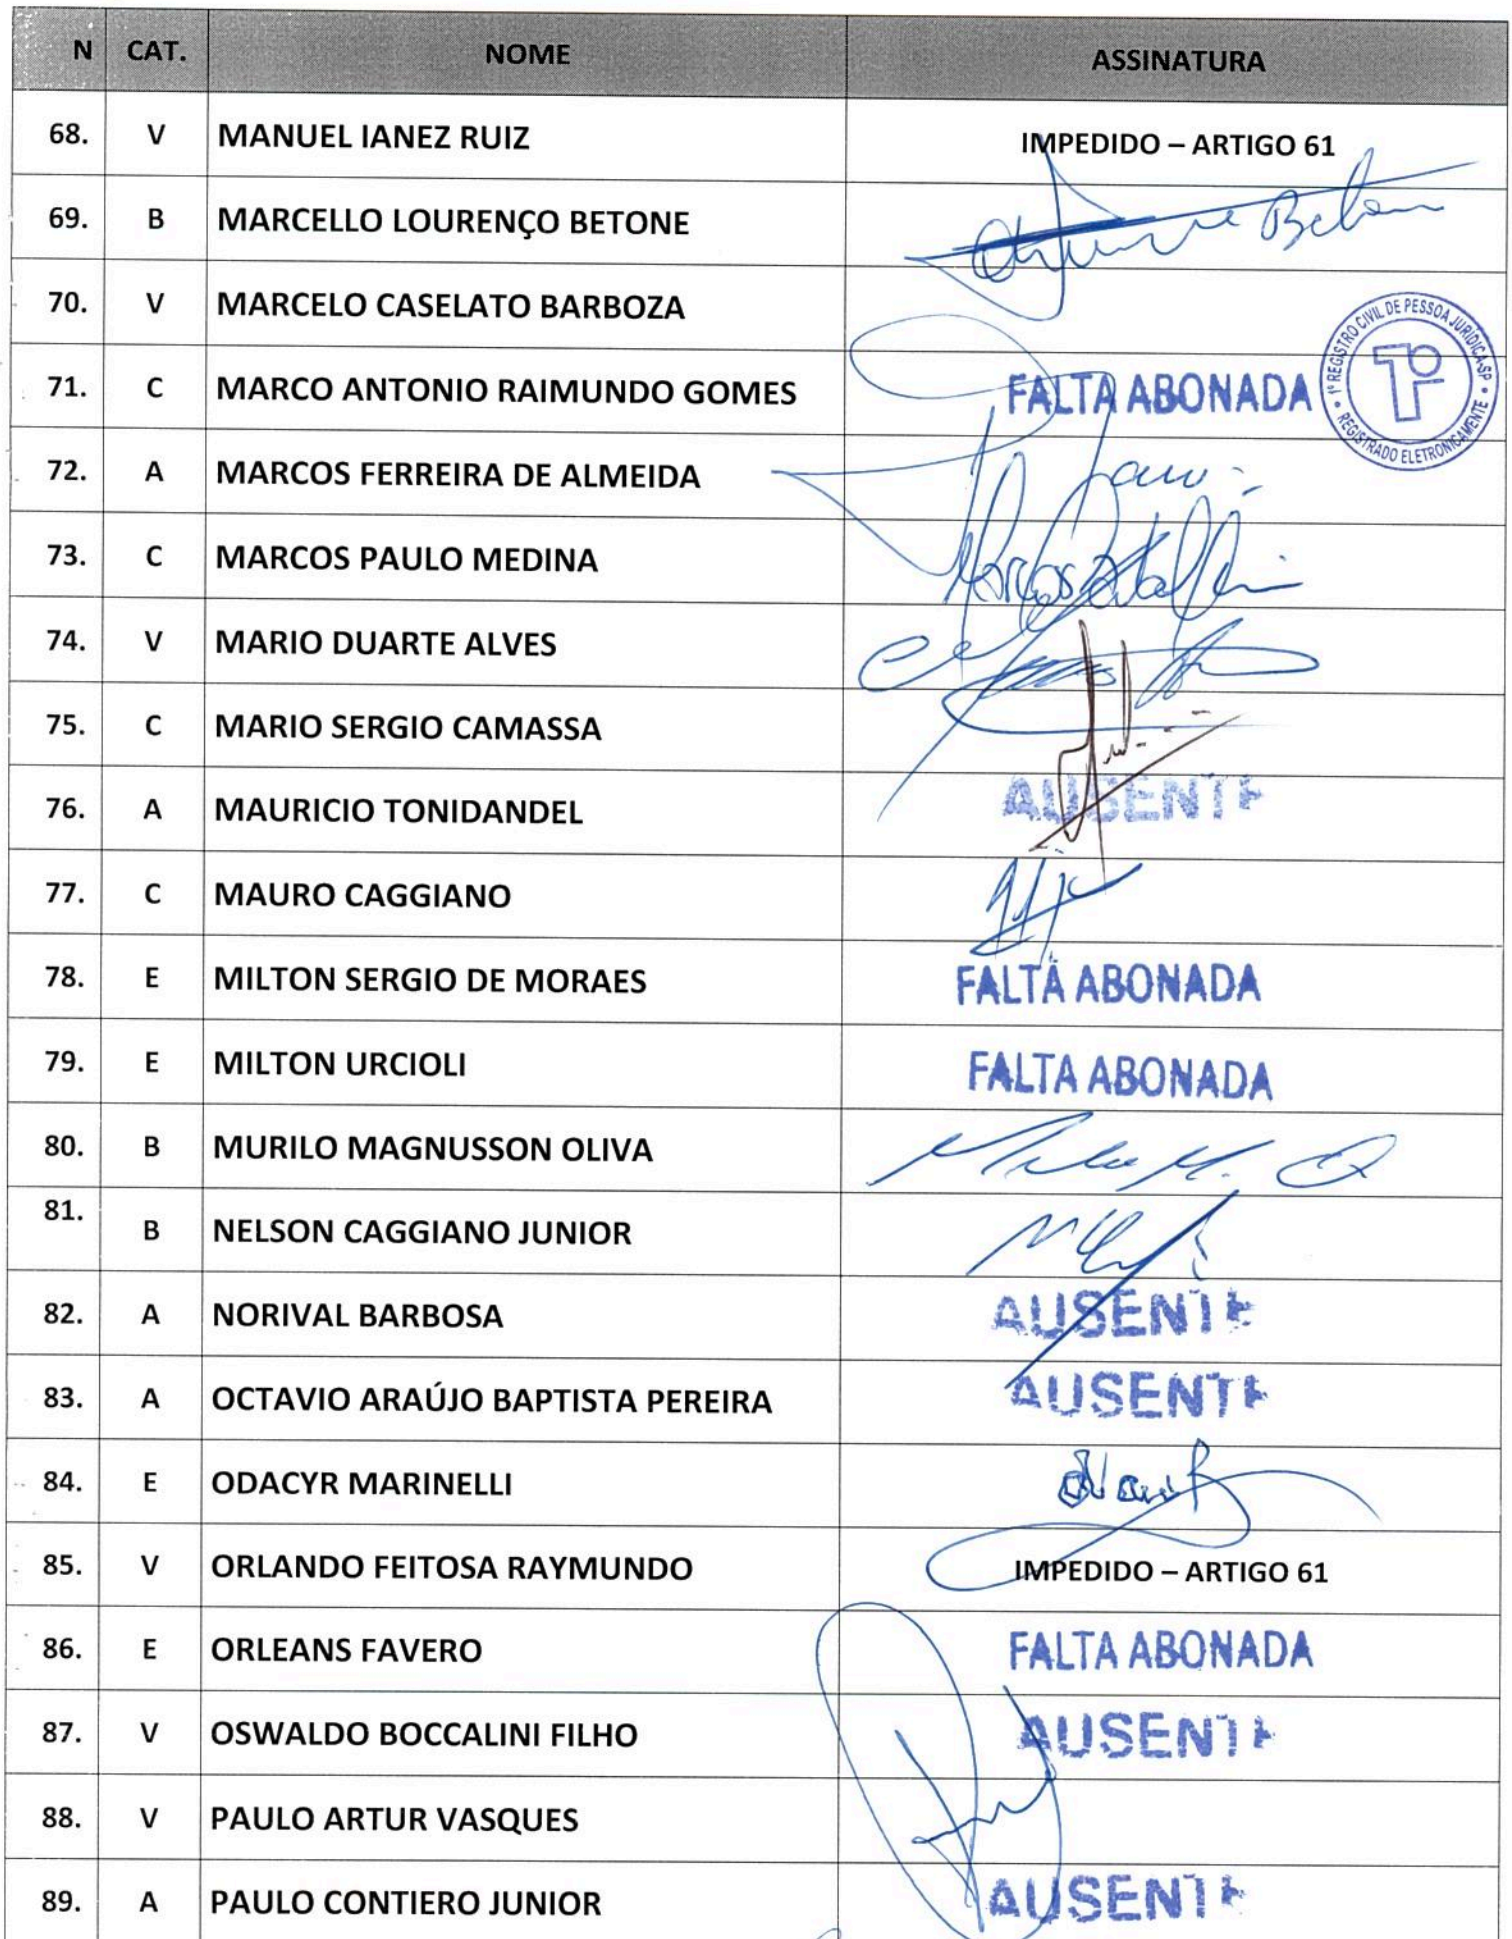 N CAT. NOME ASSINATURA
68. V MANUEL IANEZ RUIZ IMPEDIDO – ARTIGO 61
69. B MARCELLO LOURENÇO BETONE
70. V MARCELO CASELATO BARBOZA
1º REGISTRO CIVIL DE PESSOA JURIDICA-SP • REGISTRADO ELETRONICAMENTE •
71. C MARCO ANTONIO RAIMUNDO GOMES FALTA ABONADA
72. A MARCOS FERREIRA DE ALMEIDA
73. C MARCOS PAULO MEDINA
74. V MARIO DUARTE ALVES
75. C MARIO SERGIO CAMASSA
76. A MAURICIO TONIDANDEL AUSENTE
77. C MAURO CAGGIANO
78. E MILTON SERGIO DE MORAES FALTA ABONADA
79. E MILTON URCIOLI FALTA ABONADA
80. B MURILO MAGNUSSON OLIVA
81. B NELSON CAGGIANO JUNIOR
82. A NORIVAL BARBOSA AUSENTE
83. A OCTAVIO ARAÚJO BAPTISTA PEREIRA AUSENTE
84. E ODACYR MARINELLI
85. V ORLANDO FEITOSA RAYMUNDO IMPEDIDO – ARTIGO 61
86. E ORLEANS FAVERO FALTA ABONADA
87. V OSWALDO BOCCALINI FILHO AUSENTE
88. V PAULO ARTUR VASQUES
89. A PAULO CONTIERO JUNIOR AUSENTE